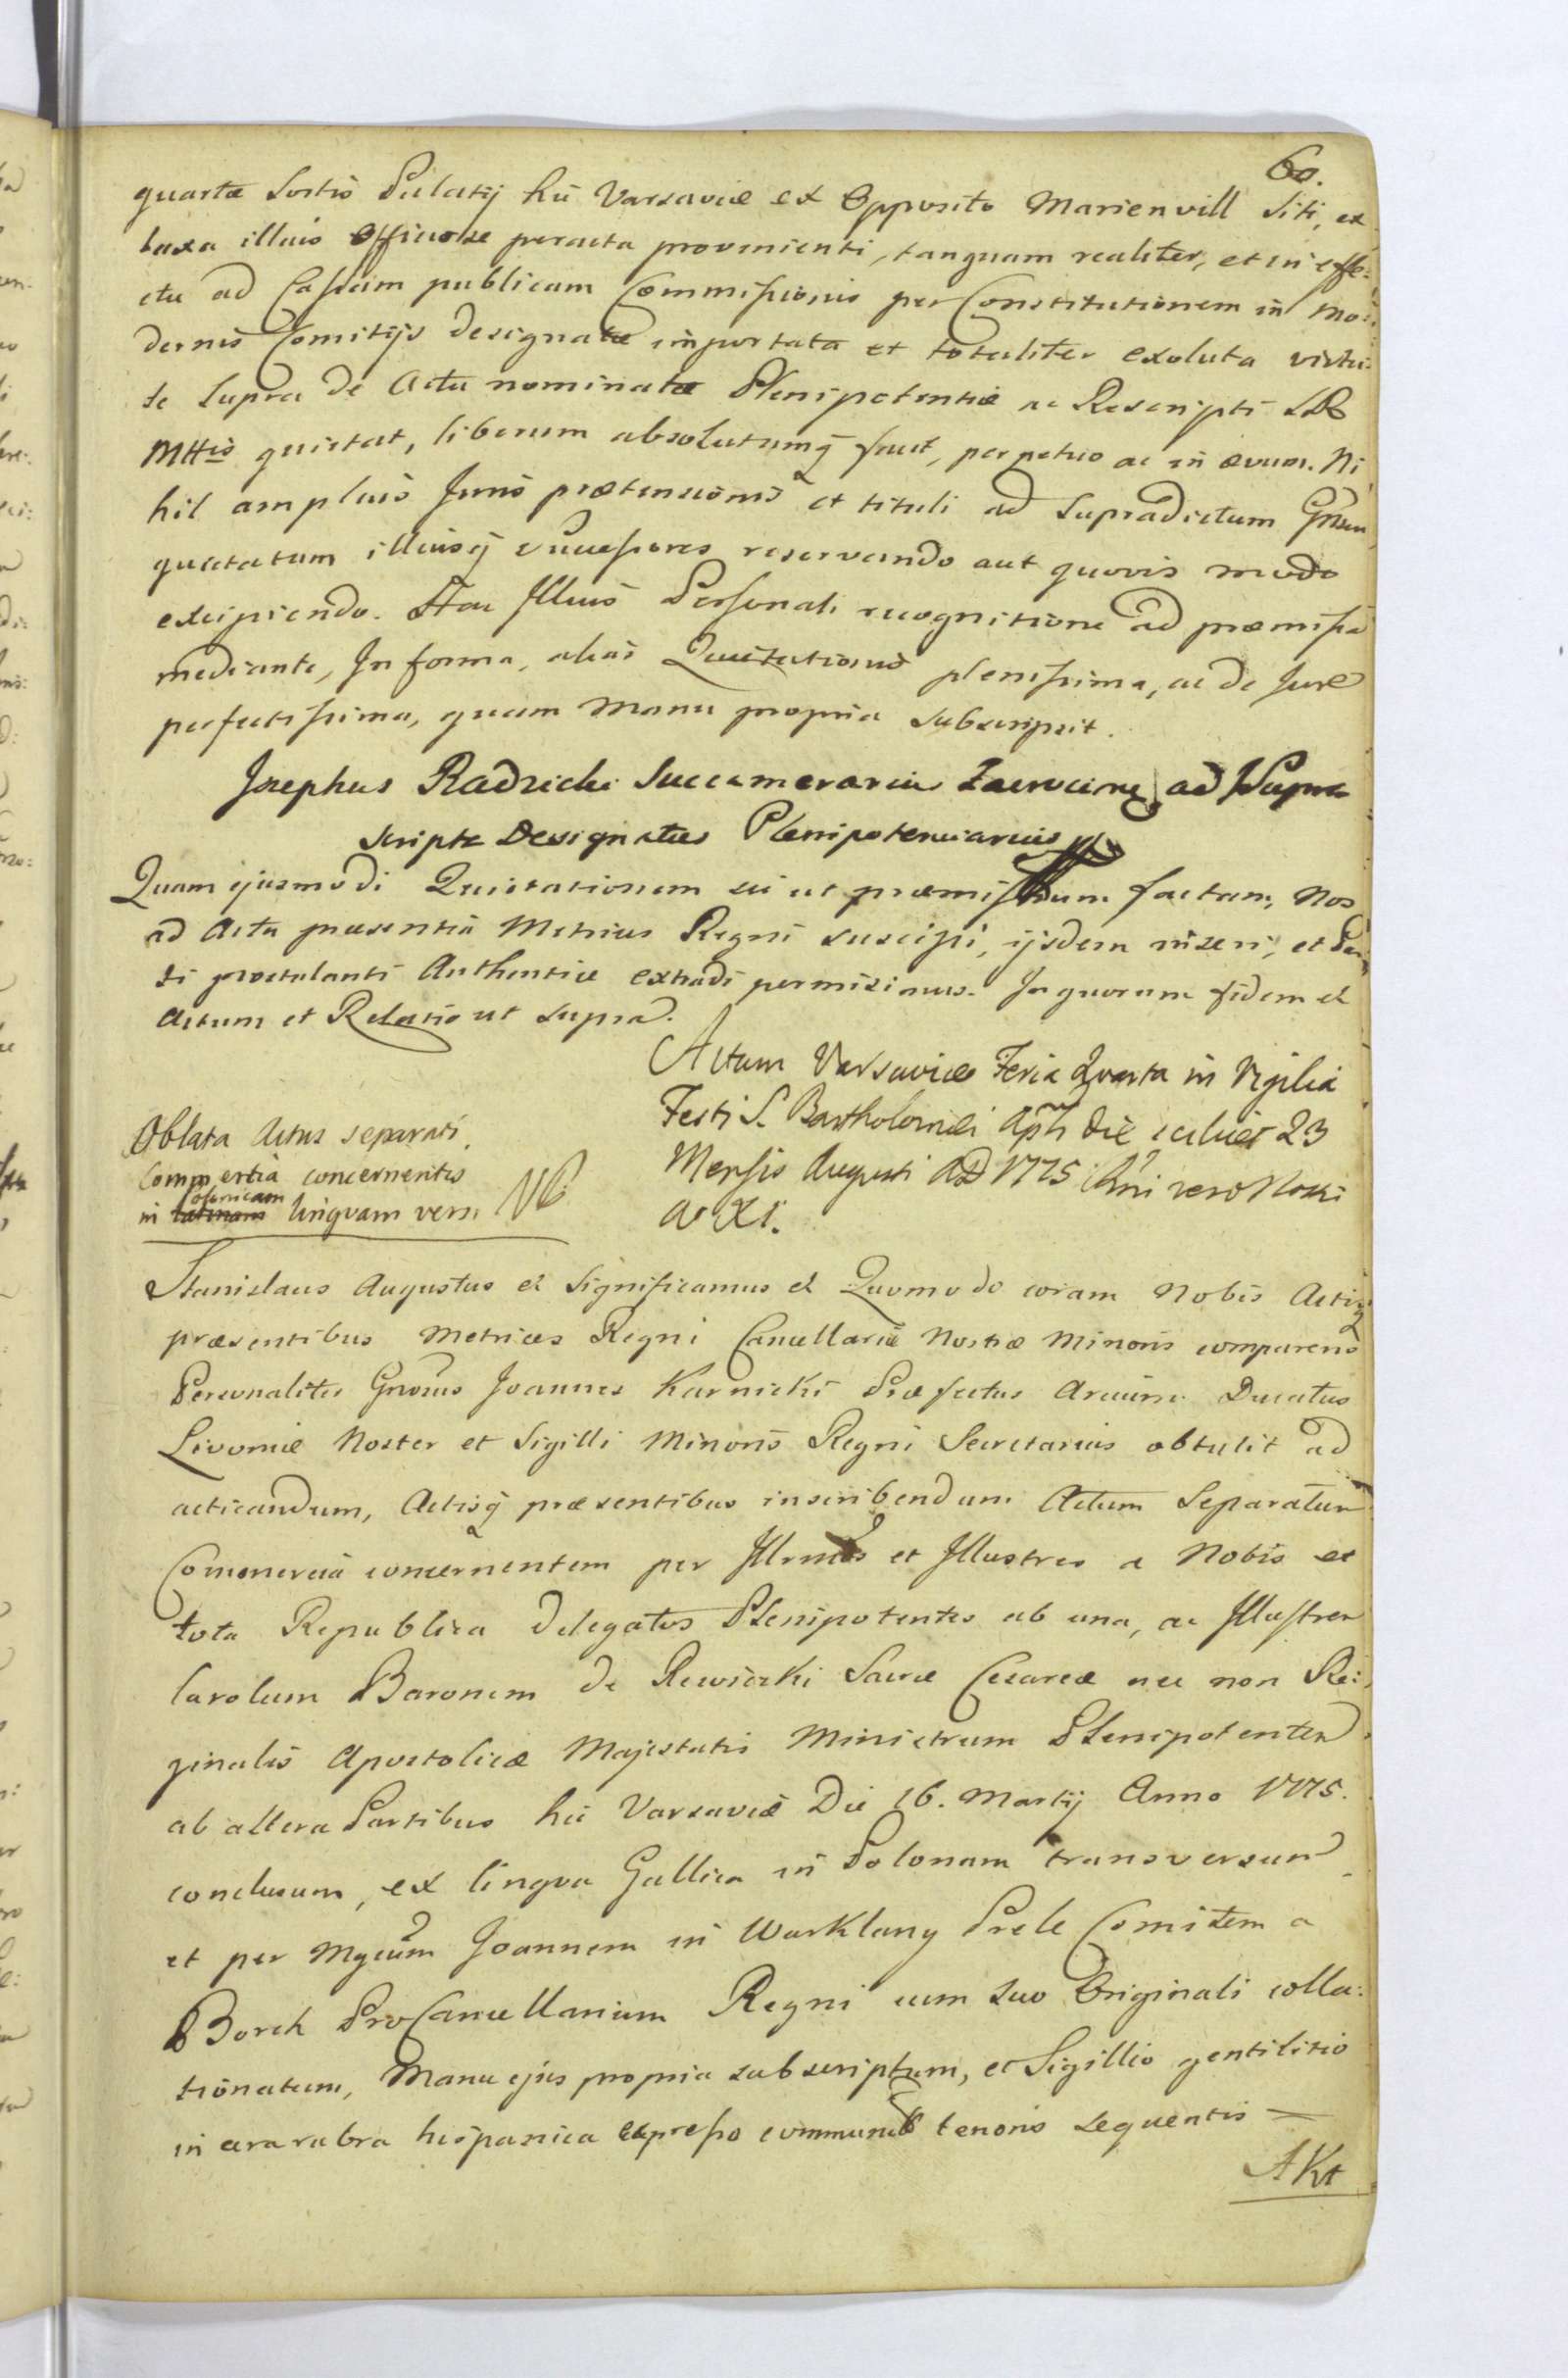 60.
quartæ Sortis Palatij hic Varsaviæ ex Opposito Marienvill Siti, ex
taxa illius Officiose peracta provenienti, tanquam realiter, et in effe:
ctu ad Cassam publicam Commissionis per Constitutionem in Mo:
dernis Comitijs designatæ importata et totaliter exoluta virtu:
te supra de Actu nominatæ Plenipotentiæ ac Rescripti SR
Mttis quietat, liberum absolutumq facit, perpetuo ac in ævum. Ni
hil amplius Juris prætensionis et tituli ad Supradictum Gnsum
quietatum illiusq successores reservando aut quovis modo
excipiendo. Hac Illius Personali recognitione ad præmissa
mediante, In forma, alias Quietationis plenissima, ac de Jure
perfectissima, quam Manu propria subscripsit.
Josephus Radzicki Succamerarius Zacrocime ad Supra
scripta Designatus Plenipotenciarius
Quam ejusmodi Quietationem sic ut præmissum factam, Nos
ad Acta præsentia Metrices Regni suscipi, ijsdem inseri, et Par
ti postulanti Authentice extradi permisimus. In quorum fidem et
Actum et Relatio ut supra.
Actum Varsaviæ Feria Quarta in Vigilia
Festi S. Bartholomæi Apli die scilicet 23
Mensis Augusti AD 1775 Rni vero Nostri
A° XI.
Oblata Actus separati
Commertia concernentis
in latinam Polonicam linguam versi NB
Stanislaus Augustus et Significamus et Quomodo coram Nobis Actisq
præsentibus Metrices Regni Cancellariæ Nostræ Minoris comparens
Personaliter Gnosus Joannes Karnicki Præfectus Arcium Ducatus
Livoniæ Noster et Sigilli Minoris Regni Secretarius obtulit ad
acticandum, Actisq præsentibus inscribendum Actum Separatum
Commercia concernentem per Illrmos et Illustres a Nobis et
tota Republica delegatos Plenipotentes ab una, ac Illustrem
Carolum Baronem de Rewiczki Sacræ Cesareæ nec non Re:
ginalis Apostolicæ Majestatis Ministrum Plenipotentem
ab altera Partibus hic Varsaviæ Die 16. Martij Anno 1775.
conclusum, ex lingva Gallica in Polonam transversum
et per Mgcum Joannem in Warklany Prele Comitem a
Borch ProCancellarium Regni cum suo Originali colla:
tionatum, Manu ejus propria subscriptum, et Sigillio gentilitio
in cera rubra hispanica expresso communitum tenoris sequentis =
AKt